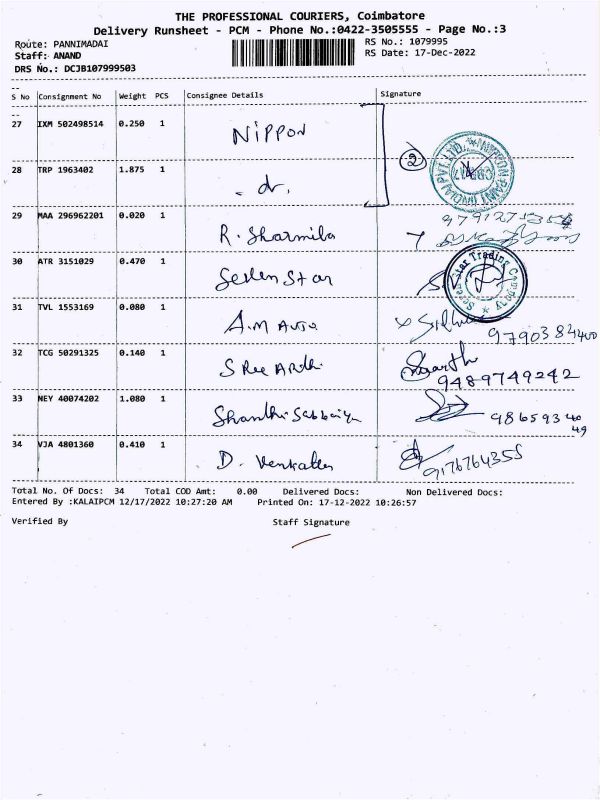 THE PROFESSIONAL COURIERS, Coimbatore
Delivery Runsheet - PCM - Phone No.:0422-3505555 - Page No.:3
Route: PANNIMADAI
RS No.: 1079995
Staff: ANAND
RS Date: 17-Dec-2022
DRS No.: DCJB107999503
S No Consignment No Weight PCS Consignee Details Signature
27 IXM 502498514 0.250 1 NIPPON
28 TRP 1963402 1.875 1 - do.
2
29 MAA 296962201 0.020 1 R. Sharmila
30 ATR 3151029 0.470 1 Seven Star
Seven Star Trading Company
31 TVL 1553169 0.080 1 A.M Auto
9790384400
32 TCG 50291325 0.140 1 SREE ARDHI
9489749242
33 NEY 40074202 1.080 1 Shanthi
98659340
49
34 VJA 4801360 0.410 1 D. Venkates
9176764355
Total No. Of Docs: 34 Total COD Amt: 0.00 Delivered Docs: Non Delivered Docs:
Entered By :KALAIPCM 12/17/2022 10:27:20 AM Printed On: 17-12-2022 10:26:57
Verified By Staff Signature